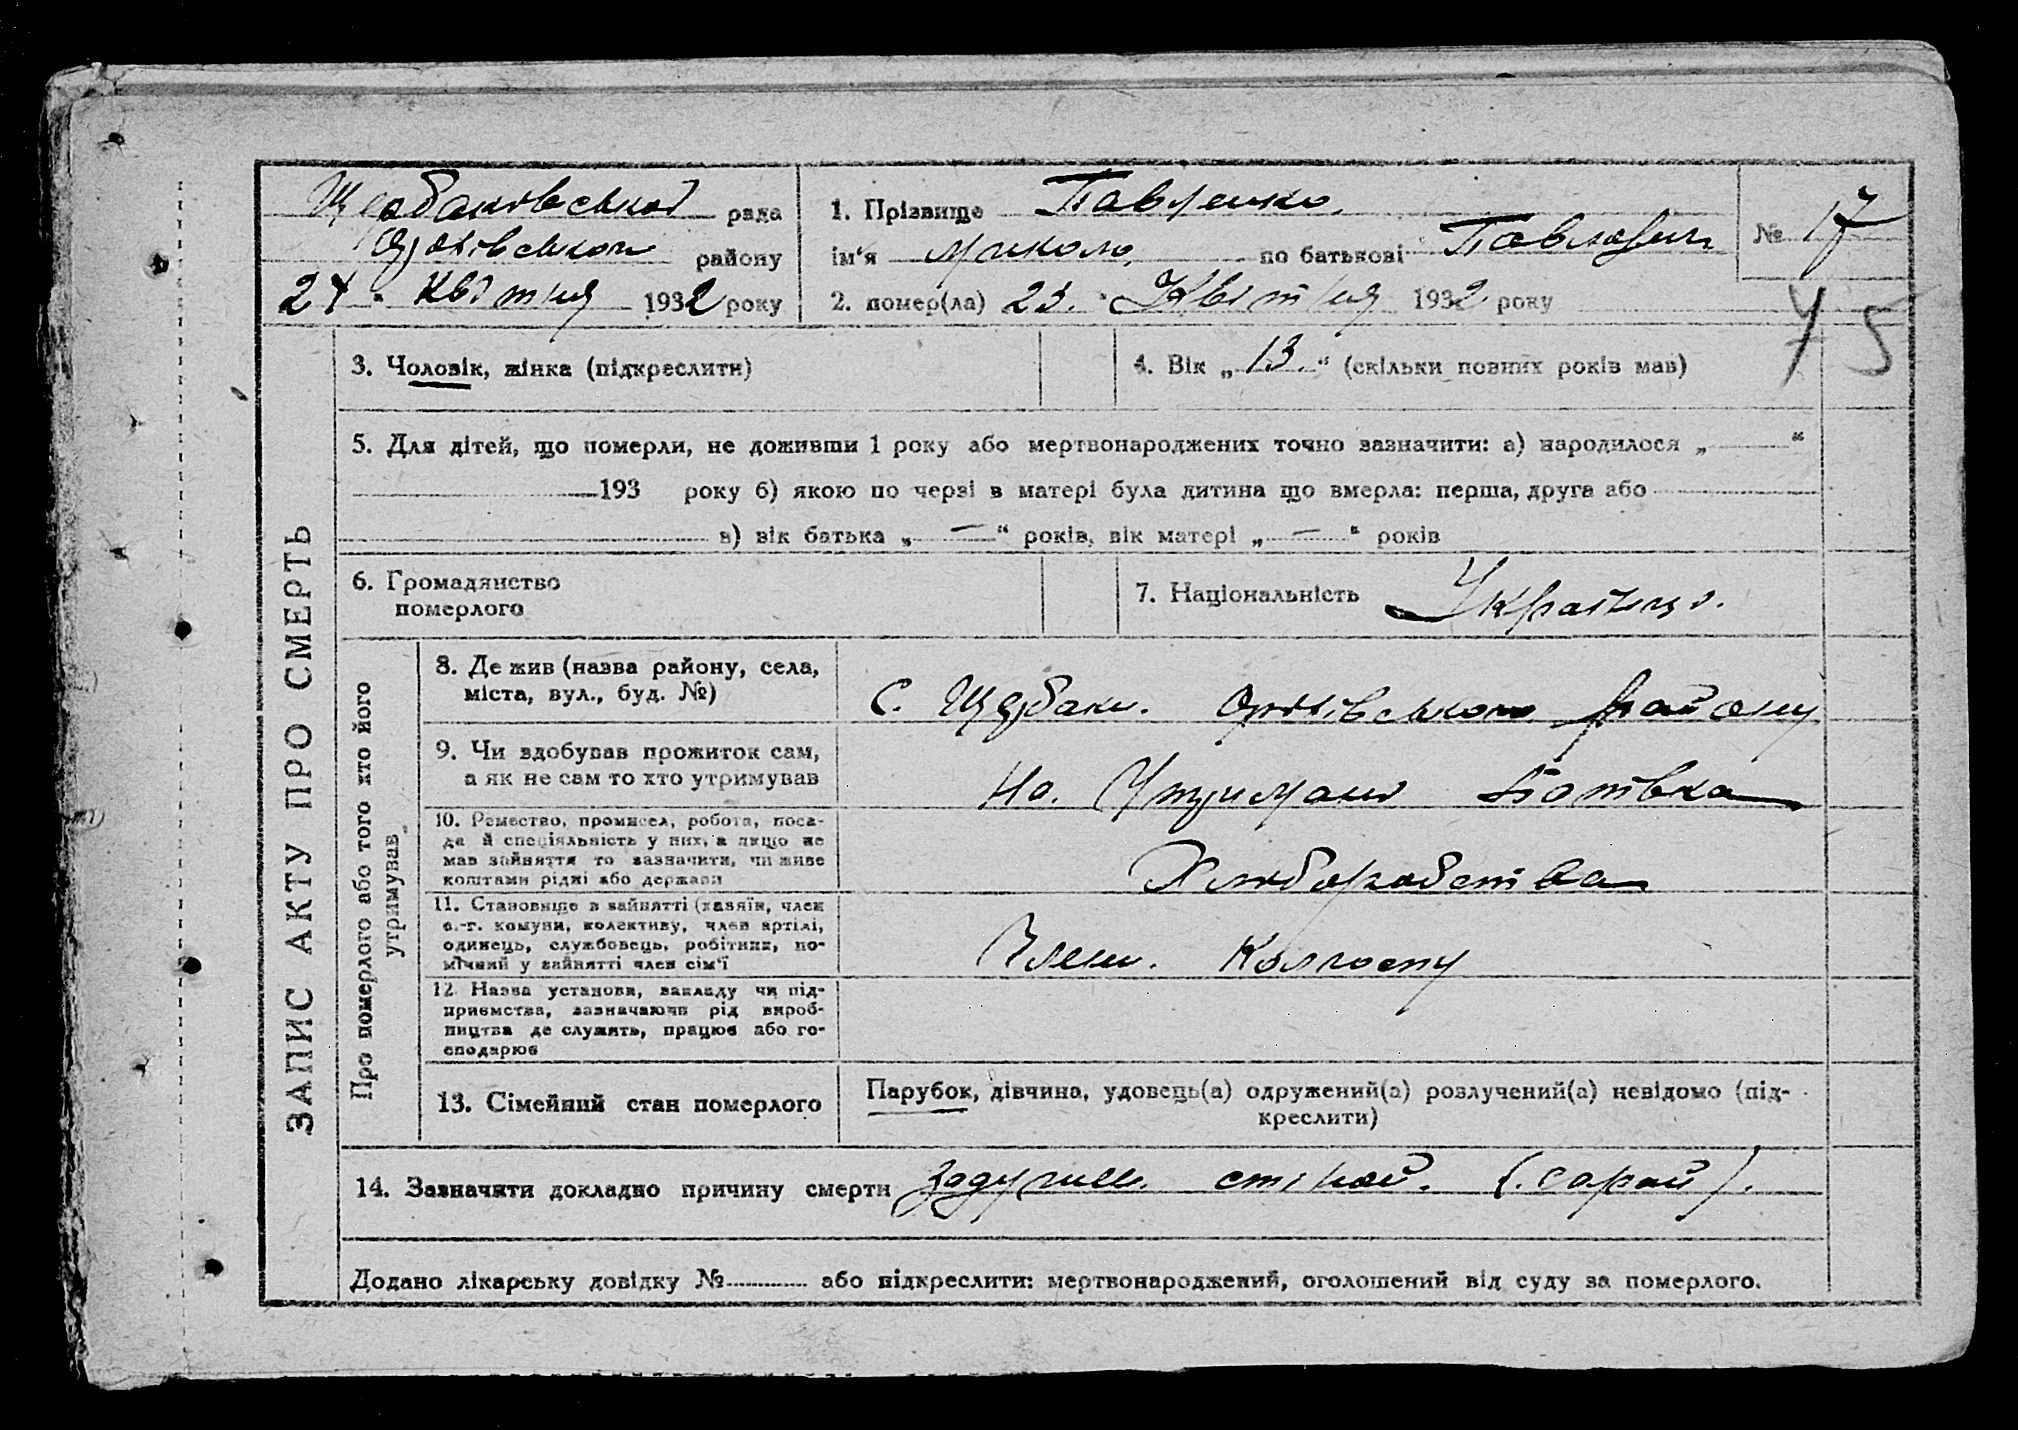 Щербаківської рада
Оріхівського району
24 " Квітня 1932 року
1. Прізвище Павленко.
ім'я Микола, по батькові Павлович
2. помер(ла) 23. " Квітня 1932 року
№ 17
75
ЗАПИС АКТУ ПРО СМЕРТЬ
3. Чоловік, жінка (підкреслити)
4. Вік „ 13. “ (скільки повних років мав)
5. Для дітей, що померли, не доживши 1 року або мертвонароджених точно зазначити: а) народилося „ — “
193 року б) якою по черзі в матері була дитина що вмерла: перша, друга або
в) вік батька „ — “ років, вік матері „ — “ років
6. Громадянство
померлого
7. Національність Українец.
Про померлого або того хто його
утримував
8. Де жив (назва району, села,
міста, вул., буд. №)
С. Щербаки. Оріхівського району
9. Чи здобував прожиток сам,
а як не сам то хто утримував
На. Утримані Батька
10. Ремество, промисел, робота, поса-
да й спеціяльність у них, а якщо не
мав зайняття то зазначити, чи живе
коштами рідні або держави
Хлиборобства
11. Становище в зайнятті (хазяїн, член
с.-г. комуни, колективу, член артілі,
одинець, службовець, робітник, по-
мічний у зайнятті член сім'ї
Член. Колгоспу
12. Назва установи, закладу чи під-
приємства, зазначаючи рід вироб-
ництва де служить, працює або го-
сподарює
13. Сімейний стан померлого
Парубок, дівчина, удовець(а) одружений(а) розлучений(а) невідомо (під-
креслити)
14. Зазначити докладно причину смерти Задушен. стіной. (.сарай).
Додано лікарську довідку № або підкреслити: мертвонароджений, оголошений від суду за померлого.